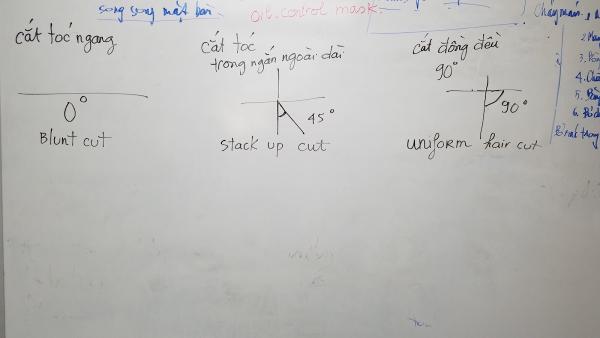 song song mặt bàn
oil. control mask.
cắt tóc ngang
0°
Blunt cut
cắt tóc
trong ngắn ngoài dài
45°
Stack up cut
cắt đồng đều
90°
90°
uniform hair cut
2.
3.
4.
5.
6.